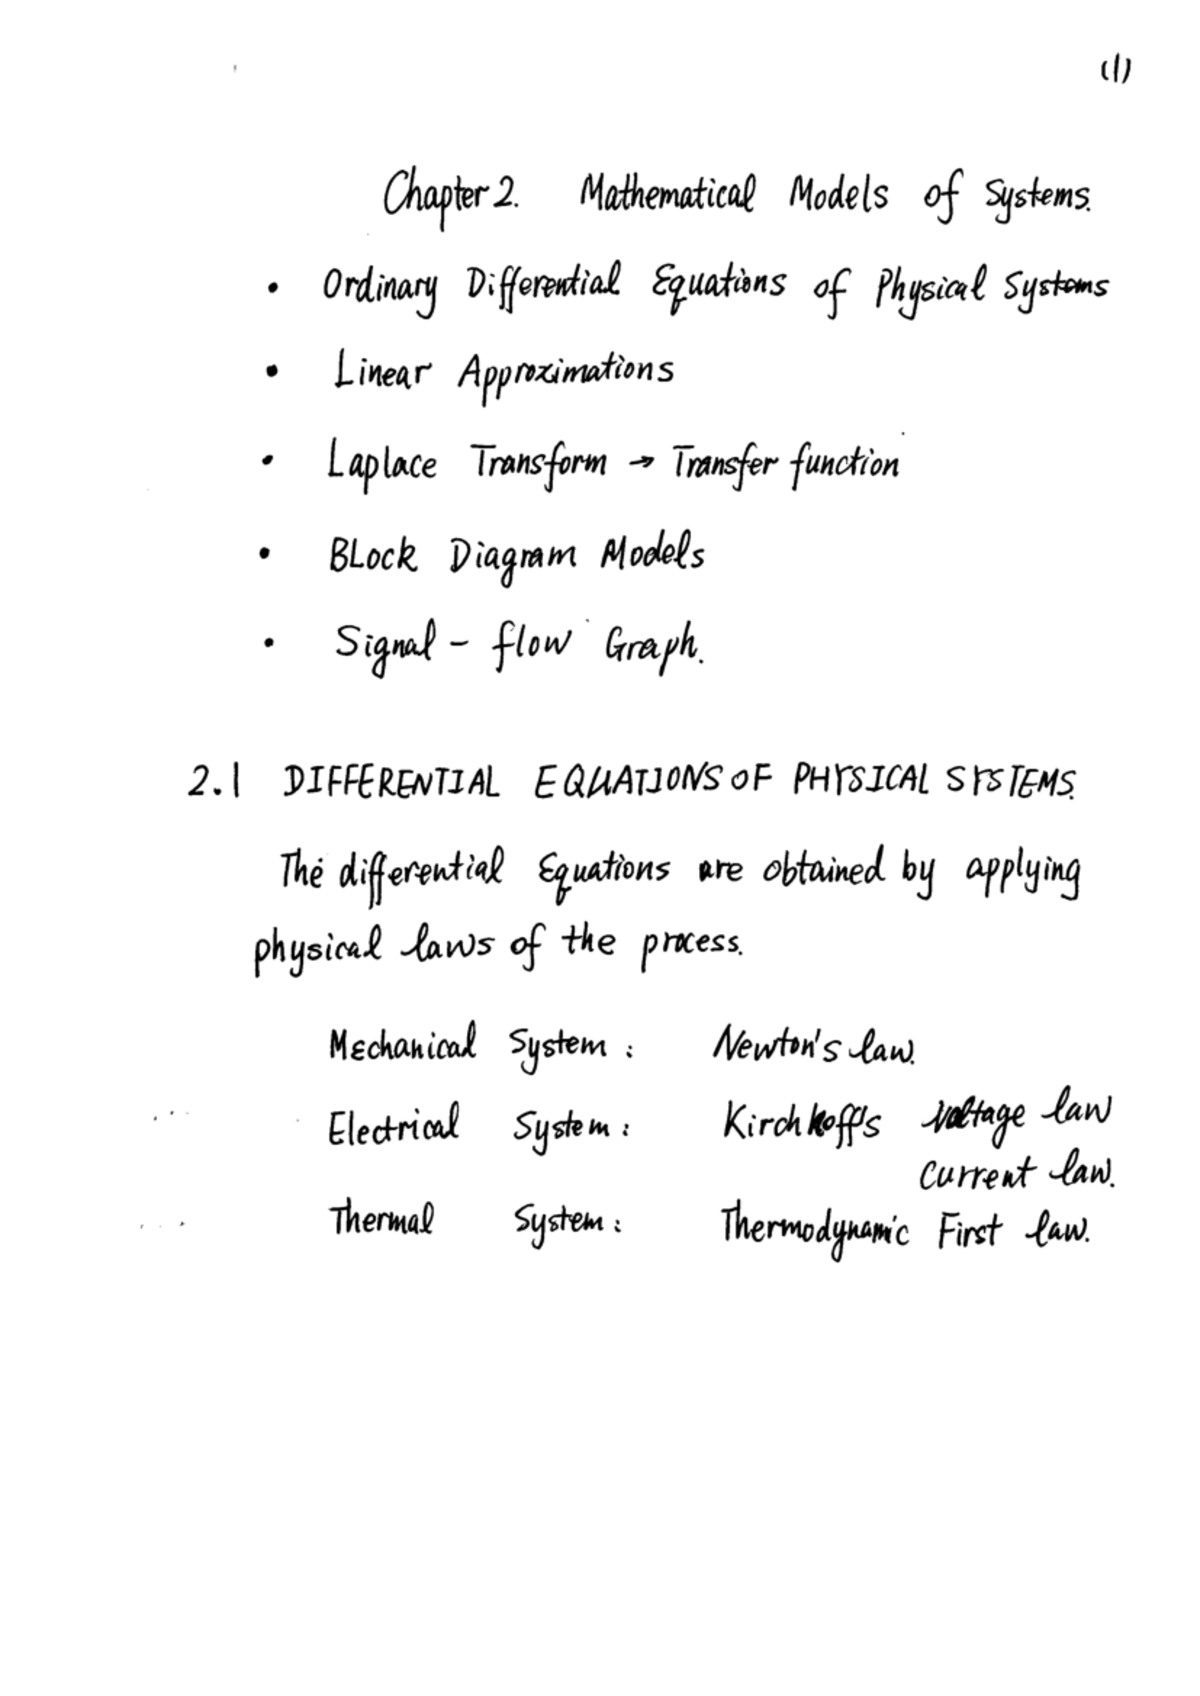 (1)
Chapter 2. Mathematical Models of Systems.
• Ordinary Differential Equations of Physical Systems
• Linear Approximations
• Laplace Transform → Transfer function
• BLock Diagram Models
• Signal - flow Graph.
2.1 DIFFERENTIAL EQUATIONS OF PHYSICAL SYSTEMS.
The differential Equations are obtained by applying
physical laws of the process.
Mechanical System : Newton's law.
Electrical System : Kirchhoff's voltage law
current law.
Thermal System : Thermodynamic First law.